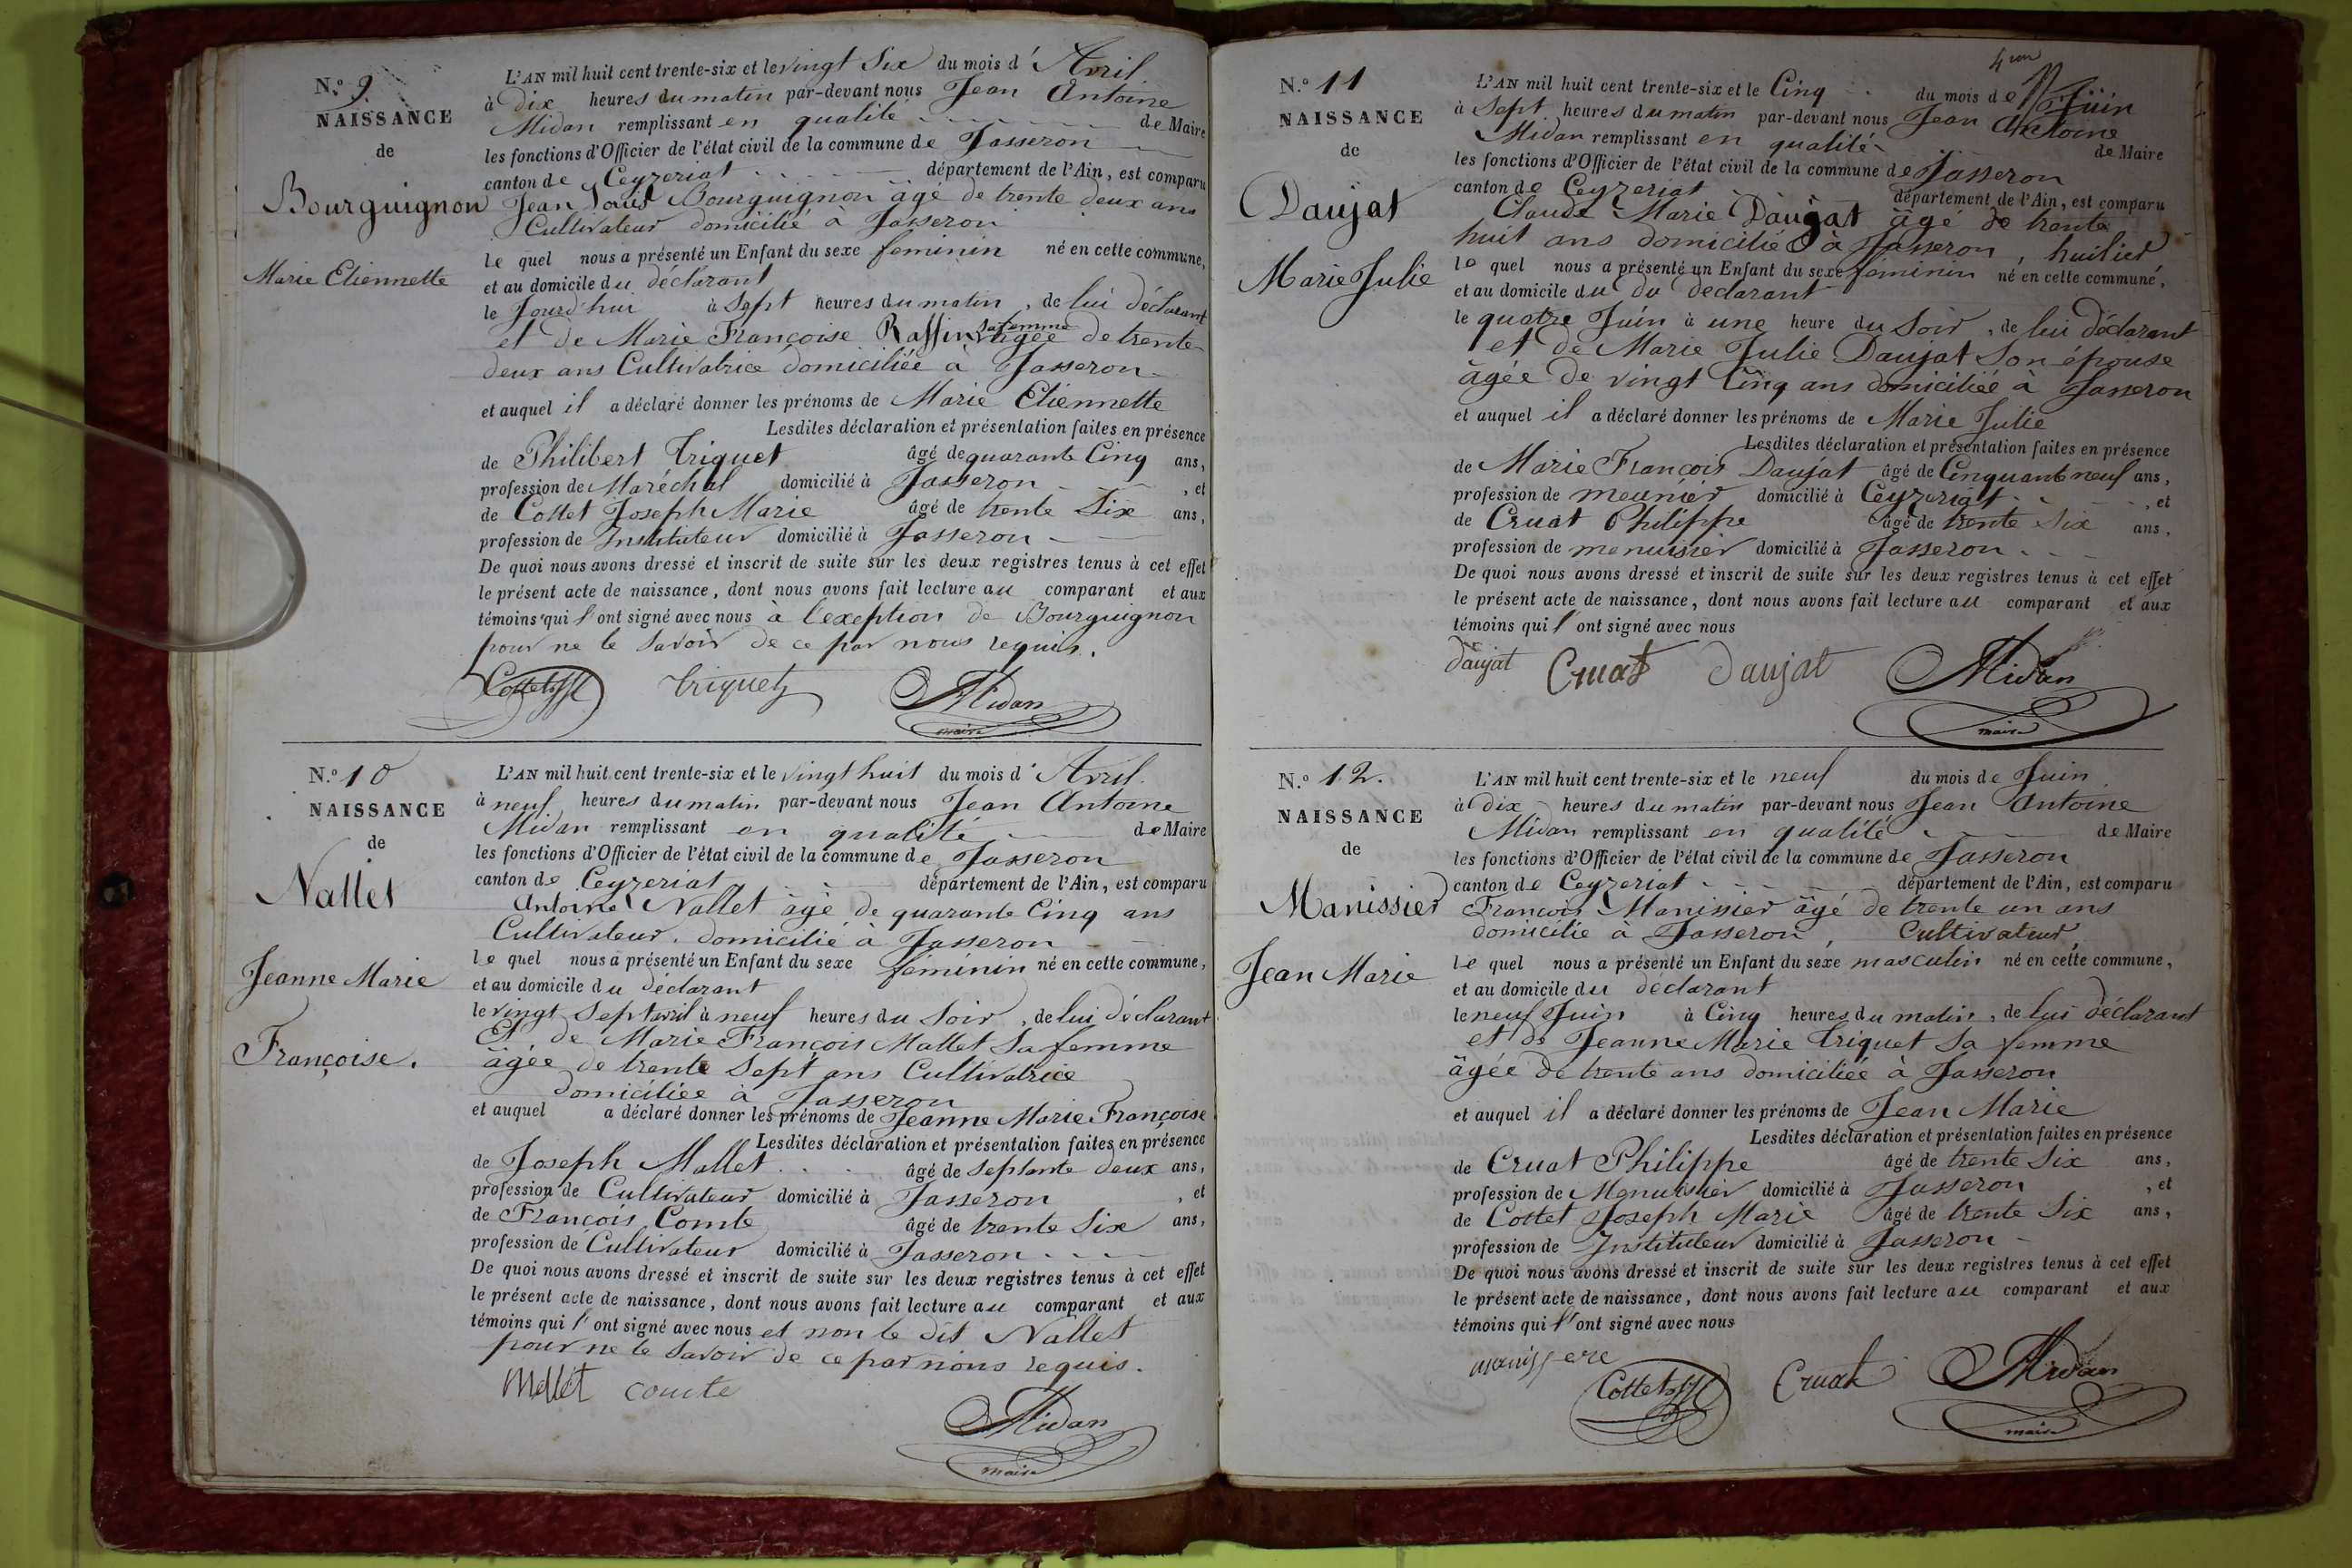 N.° 9.
NAISSANCE
de
Bourguignon
Marie Etiennette
L'AN mil huit cent trente-six et le vingt Six du mois d' Avril.
à dix heures du matin par-devant nous Jean Antoine
Midan remplissant en qualité de Maire
les fonctions d'Officier de l'état civil de la commune de Jasseron
canton de Ceyzeriat département de l'Ain, est comparu
Jean Louis Bourguignon âgé de trente deux ans
Cultivateur domicilié à Jasseron
le quel nous a présenté un Enfant du sexe feminin né en cette commune,
et au domicile du déclarant
le Jourd'hui à Sept heures du matin, de lui déclarant
et de Marie Françoise Raffin sa femme âgée de trente
deux ans Cultivatrice domiciliée à Jasseron
et auquel il a déclaré donner les prénoms de Marie Etiennette
Lesdites déclaration et présentation faites en présence
de Philibert Triquet âgé de quarante Cinq ans,
profession de Maréchal domicilié à Jasseron, et
de Cottet Joseph Marie âgé de trente Six ans,
profession de Instituteur domicilié à Jasseron
De quoi nous avons dressé et inscrit de suite sur les deux registres tenus à cet effet
le présent acte de naissance, dont nous avons fait lecture au comparant et aux
témoins qui l'ont signé avec nous à l'exeption de Bourguignon
pour ne le savoir de ce par nous requis.
Cottet Triquet Midan
maire
N.° 10
NAISSANCE
de
Nallet
Jeanne Marie
Françoise.
L'AN mil huit cent trente-six et le vingt huit du mois d' Avril.
à neuf heures du matin par-devant nous Jean Antoine
Midan remplissant en qualité de Maire
les fonctions d'Officier de l'état civil de la commune de Jasseron
canton de Ceyzeriat département de l'Ain, est comparu
Antoine Nallet âgé de quarante Cinq ans
Cultivateur. domicilié à Jasseron
le quel nous a présenté un Enfant du sexe féminin né en cette commune,
et au domicile du déclarant
le vingt Sept avril à neuf heures du Soir, de lui déclarant
Et de Marie François Mallet Sa femme
âgée de trente Sept ans Cultivatrice
domiciliée à Jasseron
et auquel a déclaré donner les prénoms de Jeanne Marie Françoise
Lesdites déclaration et présentation faites en présence
de Joseph Mallet âgé de septante deux ans,
profession de Cultivateur domicilié à Jasseron, et
de François Comte âgé de trente Six ans,
profession de Cultivateur domicilié à Jasseron
De quoi nous avons dressé et inscrit de suite sur les deux registres tenus à cet effet
le présent acte de naissance, dont nous avons fait lecture au comparant et aux
témoins qui l'ont signé avec nous et non le dit Nallet
pour ne le savoir de ce par nous requis.
Mallet comte
Midan
maire
N.° 11
NAISSANCE
de
Daujat
Marie Julie
L'AN mil huit cent trente-six et le Cinq du mois de Juin
à Sept heures du matin par-devant nous Jean Antoine
Midan remplissant en qualité de Maire
les fonctions d'Officier de l'état civil de la commune de Jasseron
canton de Ceyzeriat département de l'Ain, est comparu
Claude Marie Daujat âgé de trente
huit ans domicilié à Jasseron, huilier
le quel nous a présenté un Enfant du sexe féminin né en cette commune,
et au domicile du du déclarant
le quatre Juin à une heure du Soir, de lui déclarant
et de Marie Julie Daujat Son épouse
âgée de vingt Cinq ans domiciliée à Jasseron
et auquel il a déclaré donner les prénoms de Marie Julie
Lesdites déclaration et présentation faites en présence
de Marie François Daujat âgé de Cinquante neuf ans,
profession de meunier domicilié à Ceyzeriat, et
de Cruat Philippe âgé de trente Six ans,
profession de menuisier domicilié à Jasseron
De quoi nous avons dressé et inscrit de suite sur les deux registres tenus à cet effet
le présent acte de naissance, dont nous avons fait lecture au comparant et aux
témoins qui l'ont signé avec nous
daujat Cruat Daujat Midan
maire
N.° 12.
NAISSANCE
de
Manissier
Jean Marie
L'AN mil huit cent trente-six et le neuf du mois de Juin
à dix heures du matin par-devant nous Jean Antoine
Midan remplissant en qualité de Maire
les fonctions d'Officier de l'état civil de la commune de Jasseron
canton de Ceyzeriat département de l'Ain, est comparu
François Manissier âgé de trente un ans
domicilié à Jasseron, Cultivateur
le quel nous a présenté un Enfant du sexe masculin né en cette commune,
et au domicile du déclarant
le neuf Juin à Cinq heures du matin, de lui déclarant
et de Jeanne Marie Triquet Sa femme
âgée de trente ans domiciliée à Jasseron
et auquel il a déclaré donner les prénoms de Jean Marie
Lesdites déclaration et présentation faites en présence
de Cruat Philippe âgé de trente Six ans,
profession de Menuisier domicilié à Jasseron, et
de Cottet Joseph Marie âgé de trente Six ans,
profession de Instituteur domicilié à Jasseron
De quoi nous avons dressé et inscrit de suite sur les deux registres tenus à cet effet
le présent acte de naissance, dont nous avons fait lecture au comparant et aux
témoins qui l'ont signé avec nous
manissere Cottet Cruat Midan
maire